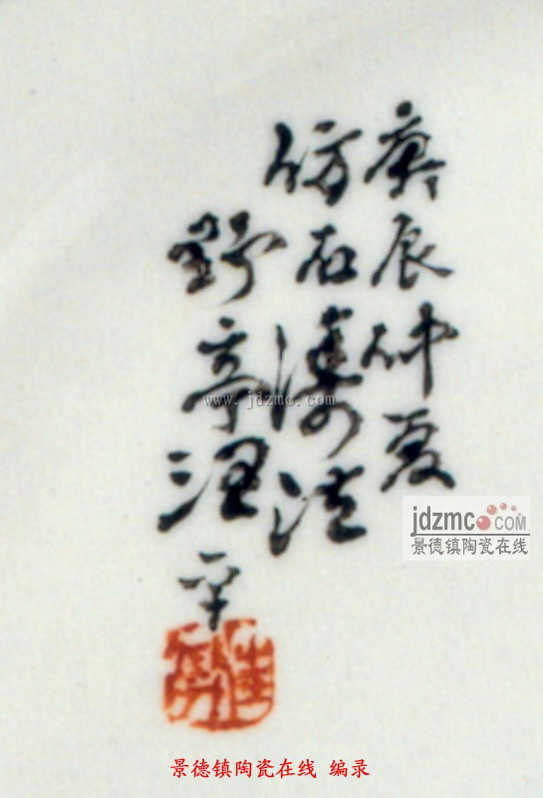 庚辰仲夏
仿石涛法
野亭汪平
www.jdzmc.com
jdzmc.COM
景德镇陶瓷在线
景德镇陶瓷在线 编录